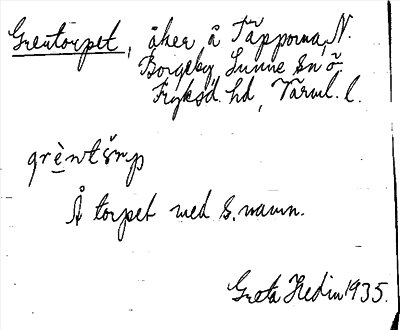 Grentorpet, åker å Täpporna, N.
Borgeby, Sunne sn ö.
Fryksd. hd, Värml. l.
grènt ŏrp
Å torpet med s. namn.
Greta Hedin 1935.